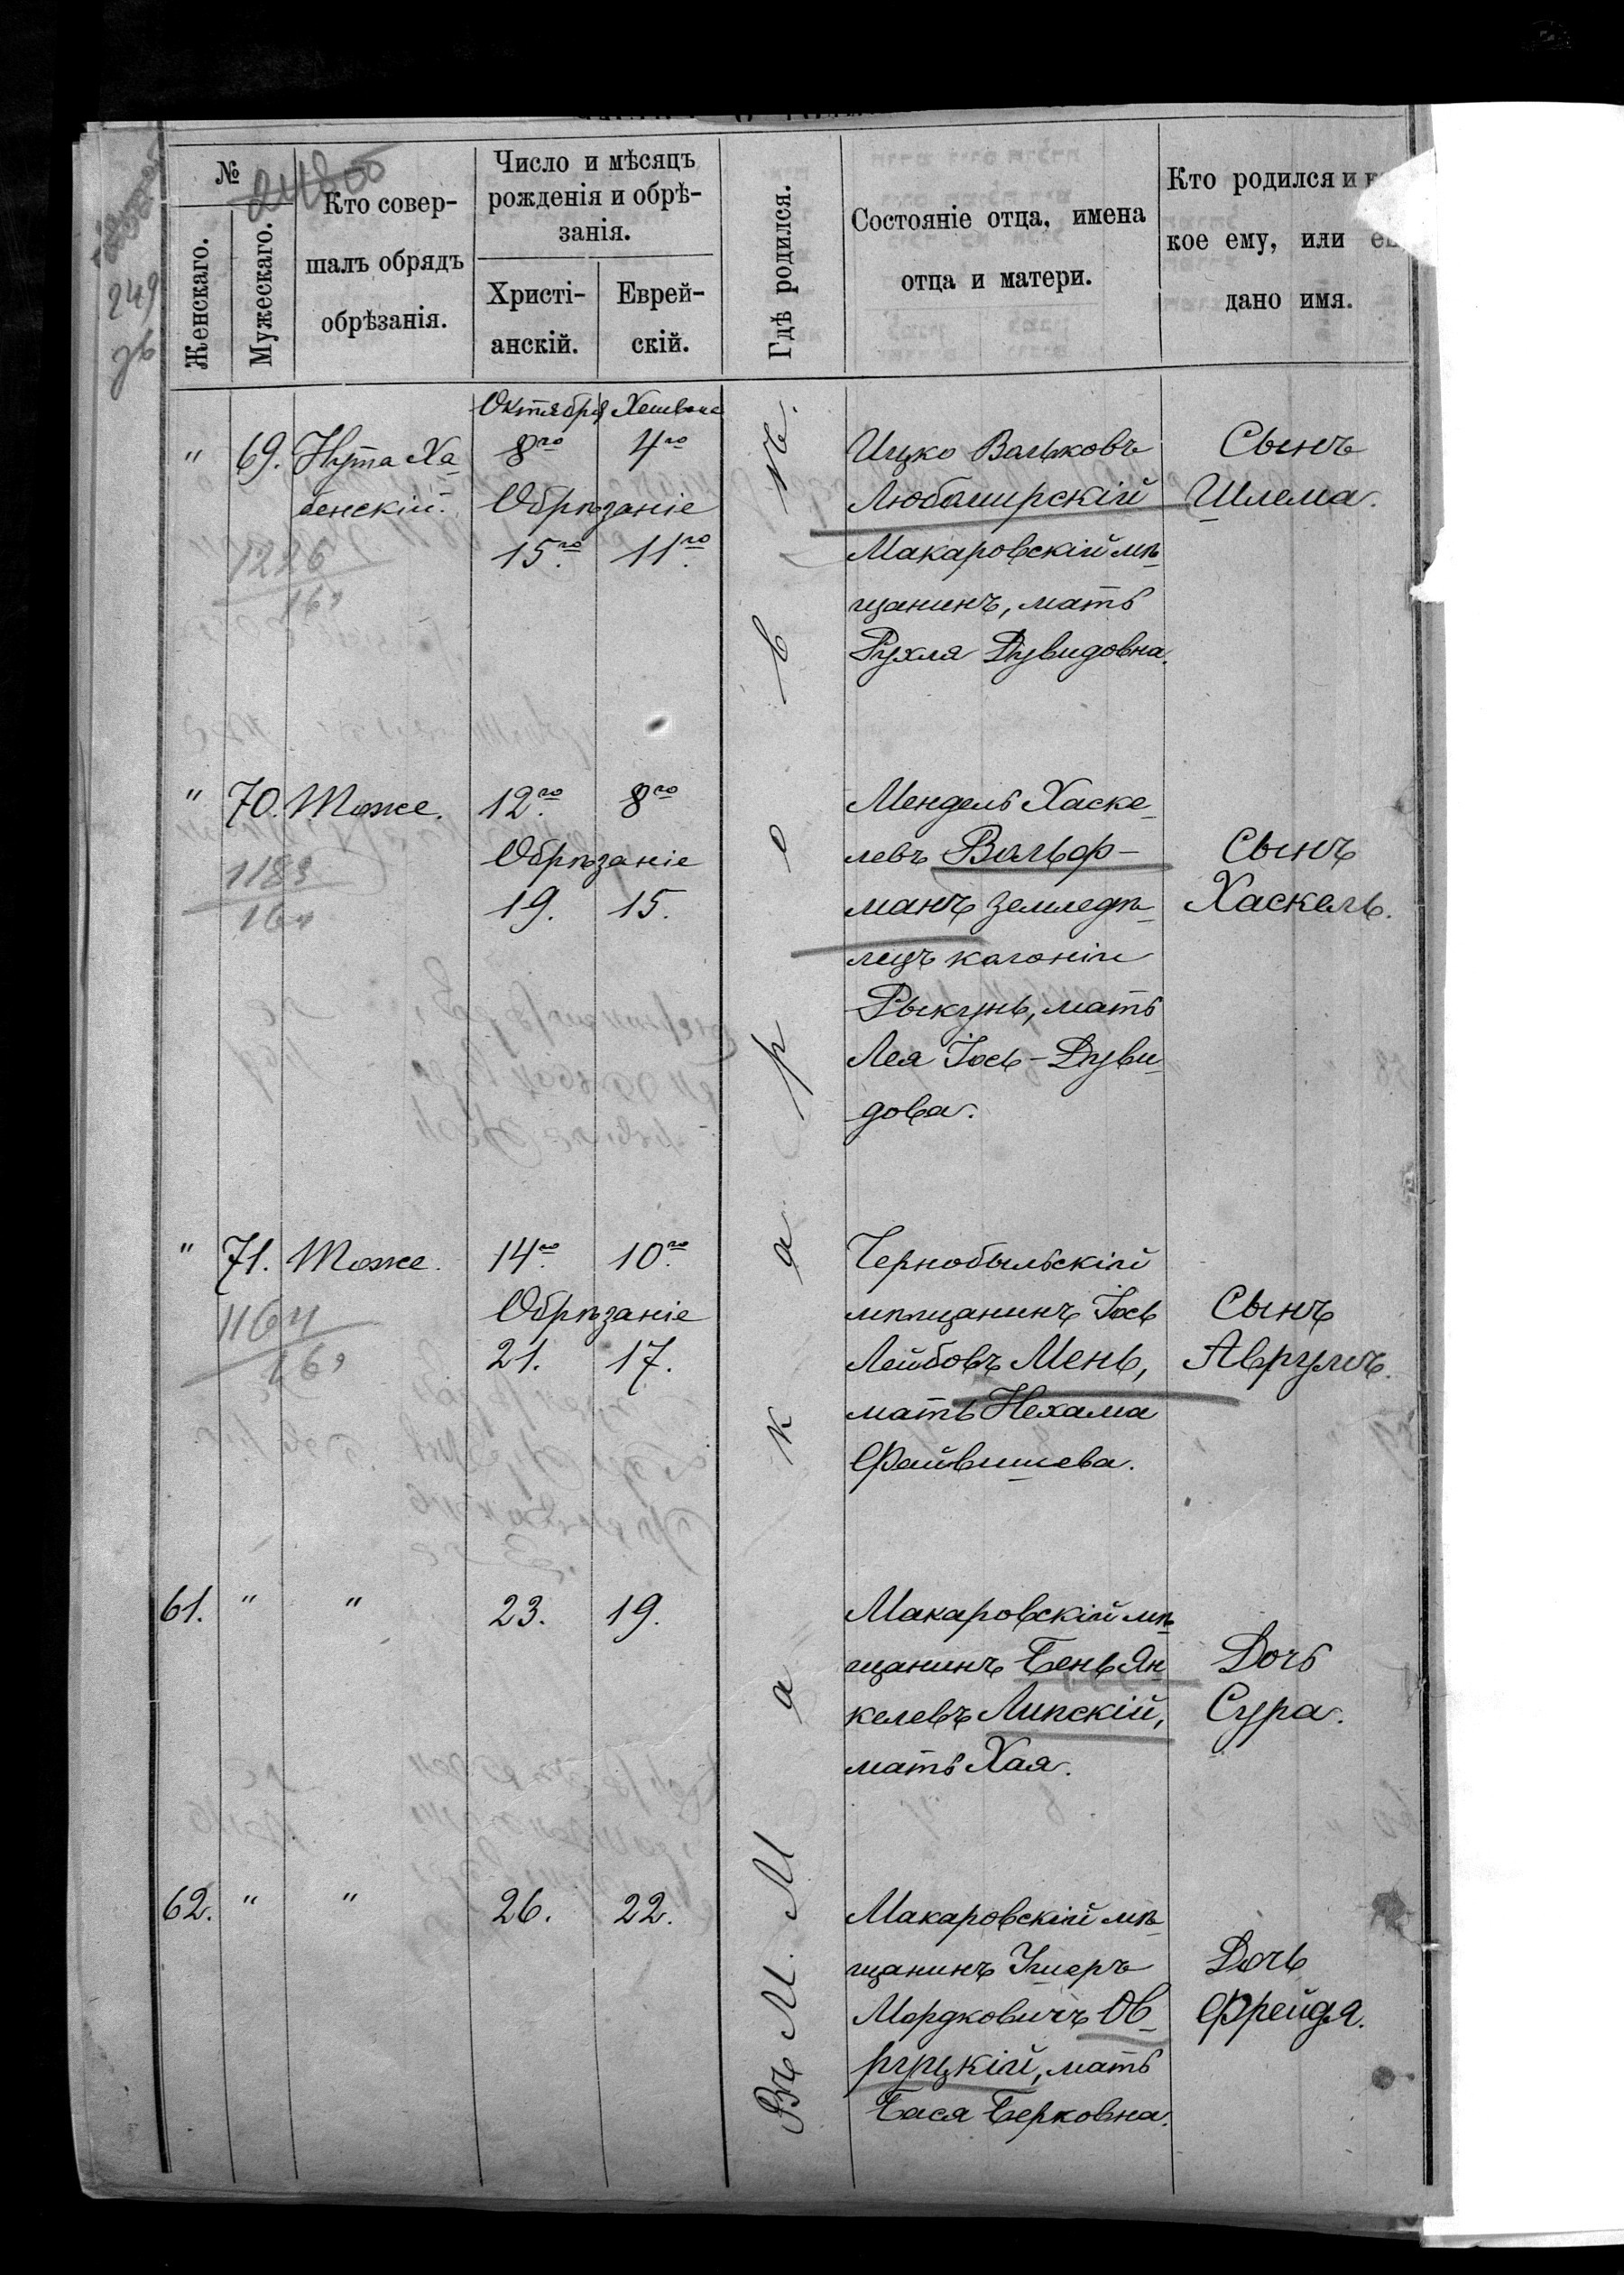 №
Женскаго.
Мужескаго.
Кто совер-
шалъ обрядъ
обрѣзанія.
Число и мѣсяцъ
рожденія и обрѣ-
занія.
Христі-
анскій.
Еврей-
скій.
Гдѣ родился.
Состояніе отца, имена
отца и матери.
Кто родился и
кое ему, или
дано имя.
249
Октября Хешвана
" 69. Нута Ха
бенскій.
8го 4го
Обрѣзаніе
15го 11го
1226
Ицко Вальковъ
Любомирскій
Макаровскій мѣ
щанинъ, мать
Рухля Дувидовна.
Сынъ
Шлема.
" 70. Тоже. 12го 8го
Обрѣзаніе
19. 15.
1183
Мендель Хаске
левъ Вольф-
манъ земледѣ
лецъ колоніи
Рыкунь, мать
Лея Іось-Дуви
дова.
Сынъ
Хаскель.
" 71. Тоже. 14го 10го
Обрѣзаніе
21. 17.
1164
Чернобыльскій
мѣщанинъ Іось
Лейбовъ Мень,
мать Нехама
Файвишева.
Сынъ
Аврумъ.
61. " " 23. 19.
Макаровскій мѣ
щанинъ Бень Ян
келевъ Липскій,
мать Хая.
Дочь
Сура.
62. " " 26. 22.
Макаровскій мѣ
щанинъ Ушеръ
Мордковичъ Ов
руцкій, мать
Бася Берковна.
Дочь
Фрейда.
Въ М. Макаровѣ.